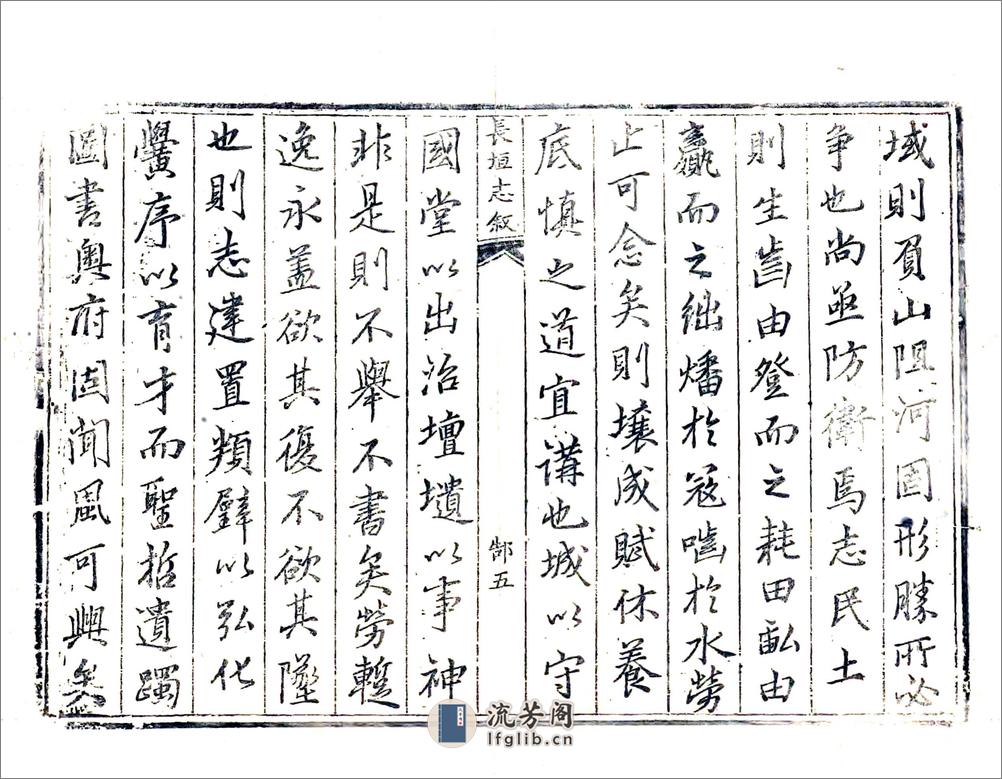 域則負山阻河固形勝所必
爭也尚亟防衛焉志民土
則生齒由登而之耗田畝由
嬴而之絀燔於寇嚙於水勞
止可念矣則壤成賦休養
底慎之道宜講也城以守
長垣志敘
郜五
國堂以出治壇壝以事神
非是則不舉不書矣勞蹔
逸永蓋欲其復不欲其墜
也則志建置頖辟以弘化
黌序以育才而聖哲遺躅
圖書奧府固聞風可興矣
流芳阁
lfglib.cn